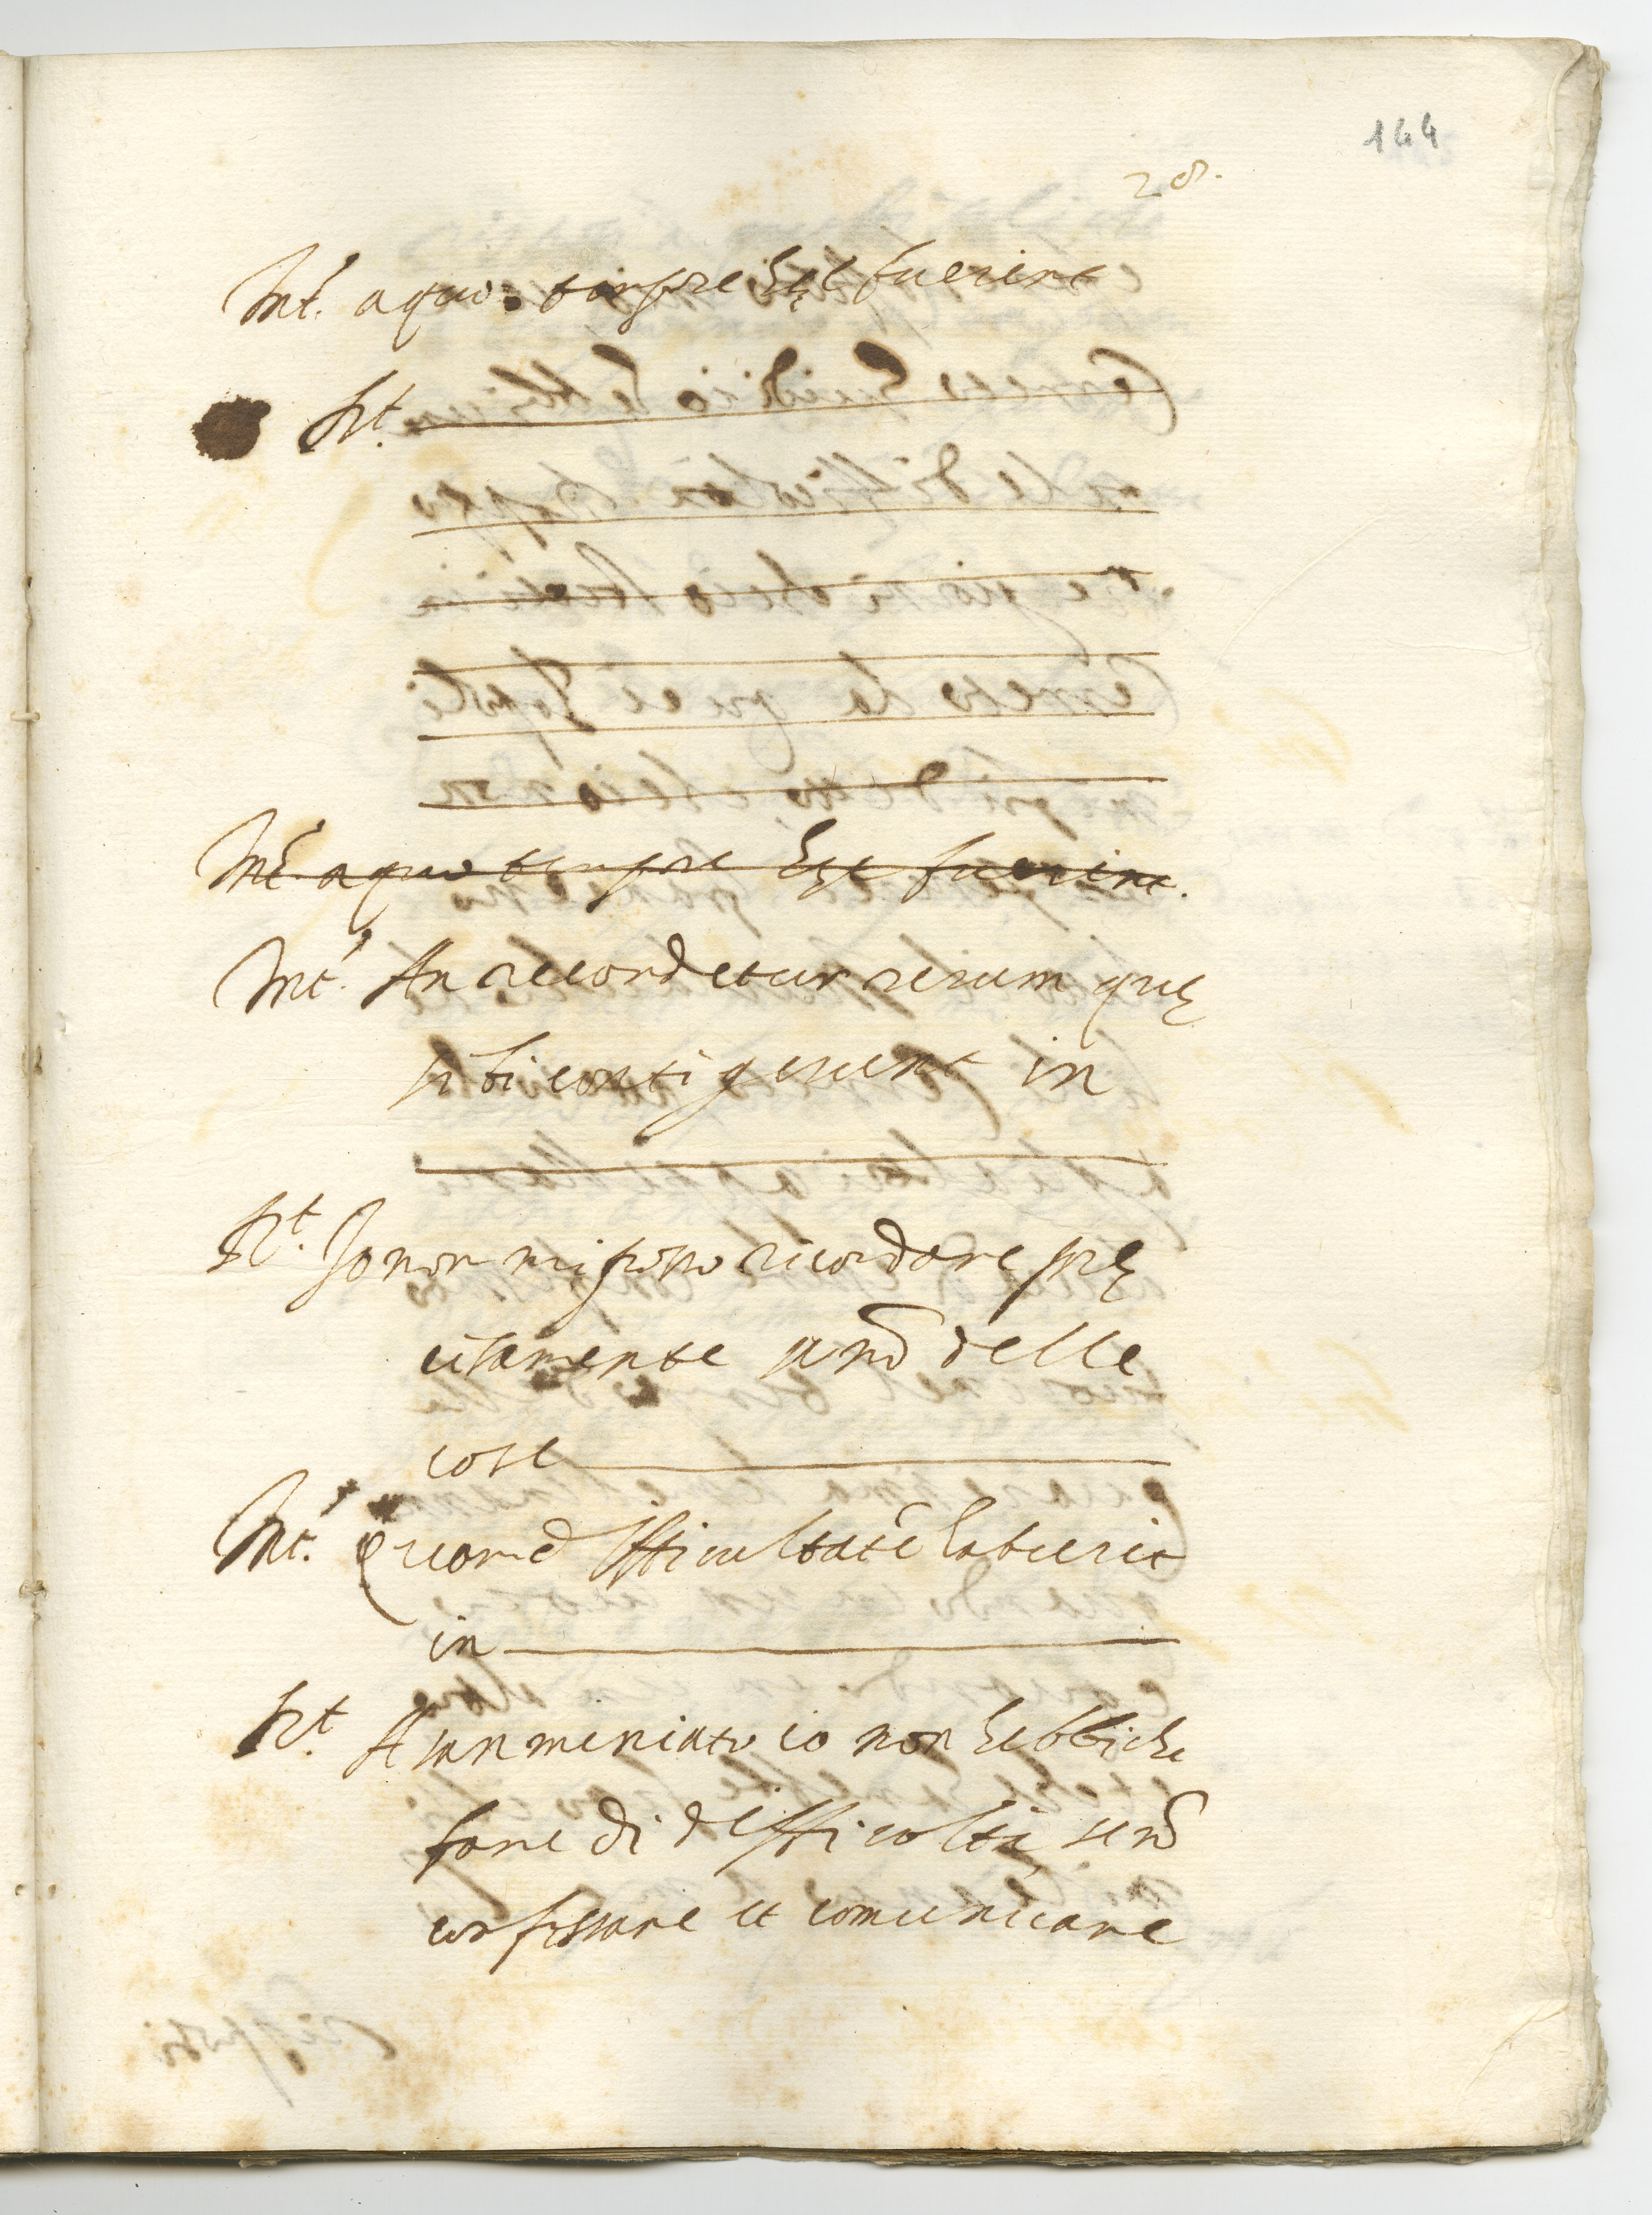 144
28.
Int. a quo tempore hęc fuerint
Rt.
Int. a quo tempore hęc fuerint.
Int. An recordetur rerum quę
sibi contigerunt in
Rt. Io non mi posso ricordare prę
cisamente se nõ delle
cose
Int. Quon difficultatẽ habuerit
in
Rt. A san meniato io non hebbi che
fare di difficoltà, se nõ
confessare et comunicare